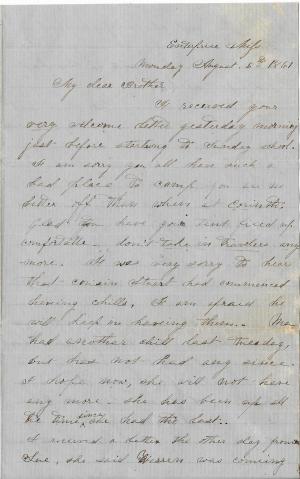 Enterprise Miss
Monday August 5th 1861
My dear Brother
I received your
very welcome letter yesterday morning
just before starting to Sunday school.
I am sorry you all have such a
bad place to camp you are no
better off than when at Corinth.
Glad you have your tent fixed up
comfortable - don't take in travelers any
more. We was very sorry to hear
that cousin Stuart had commenced
having chills, I am afraid he
will keep on having them. Ma
had another chill last Tuesday,
but has not had any since.
I hope now, she will not have
any more - she has been up all
the time, since she had the last..
I received a letter the other day from
Sue, she said Warren was coming